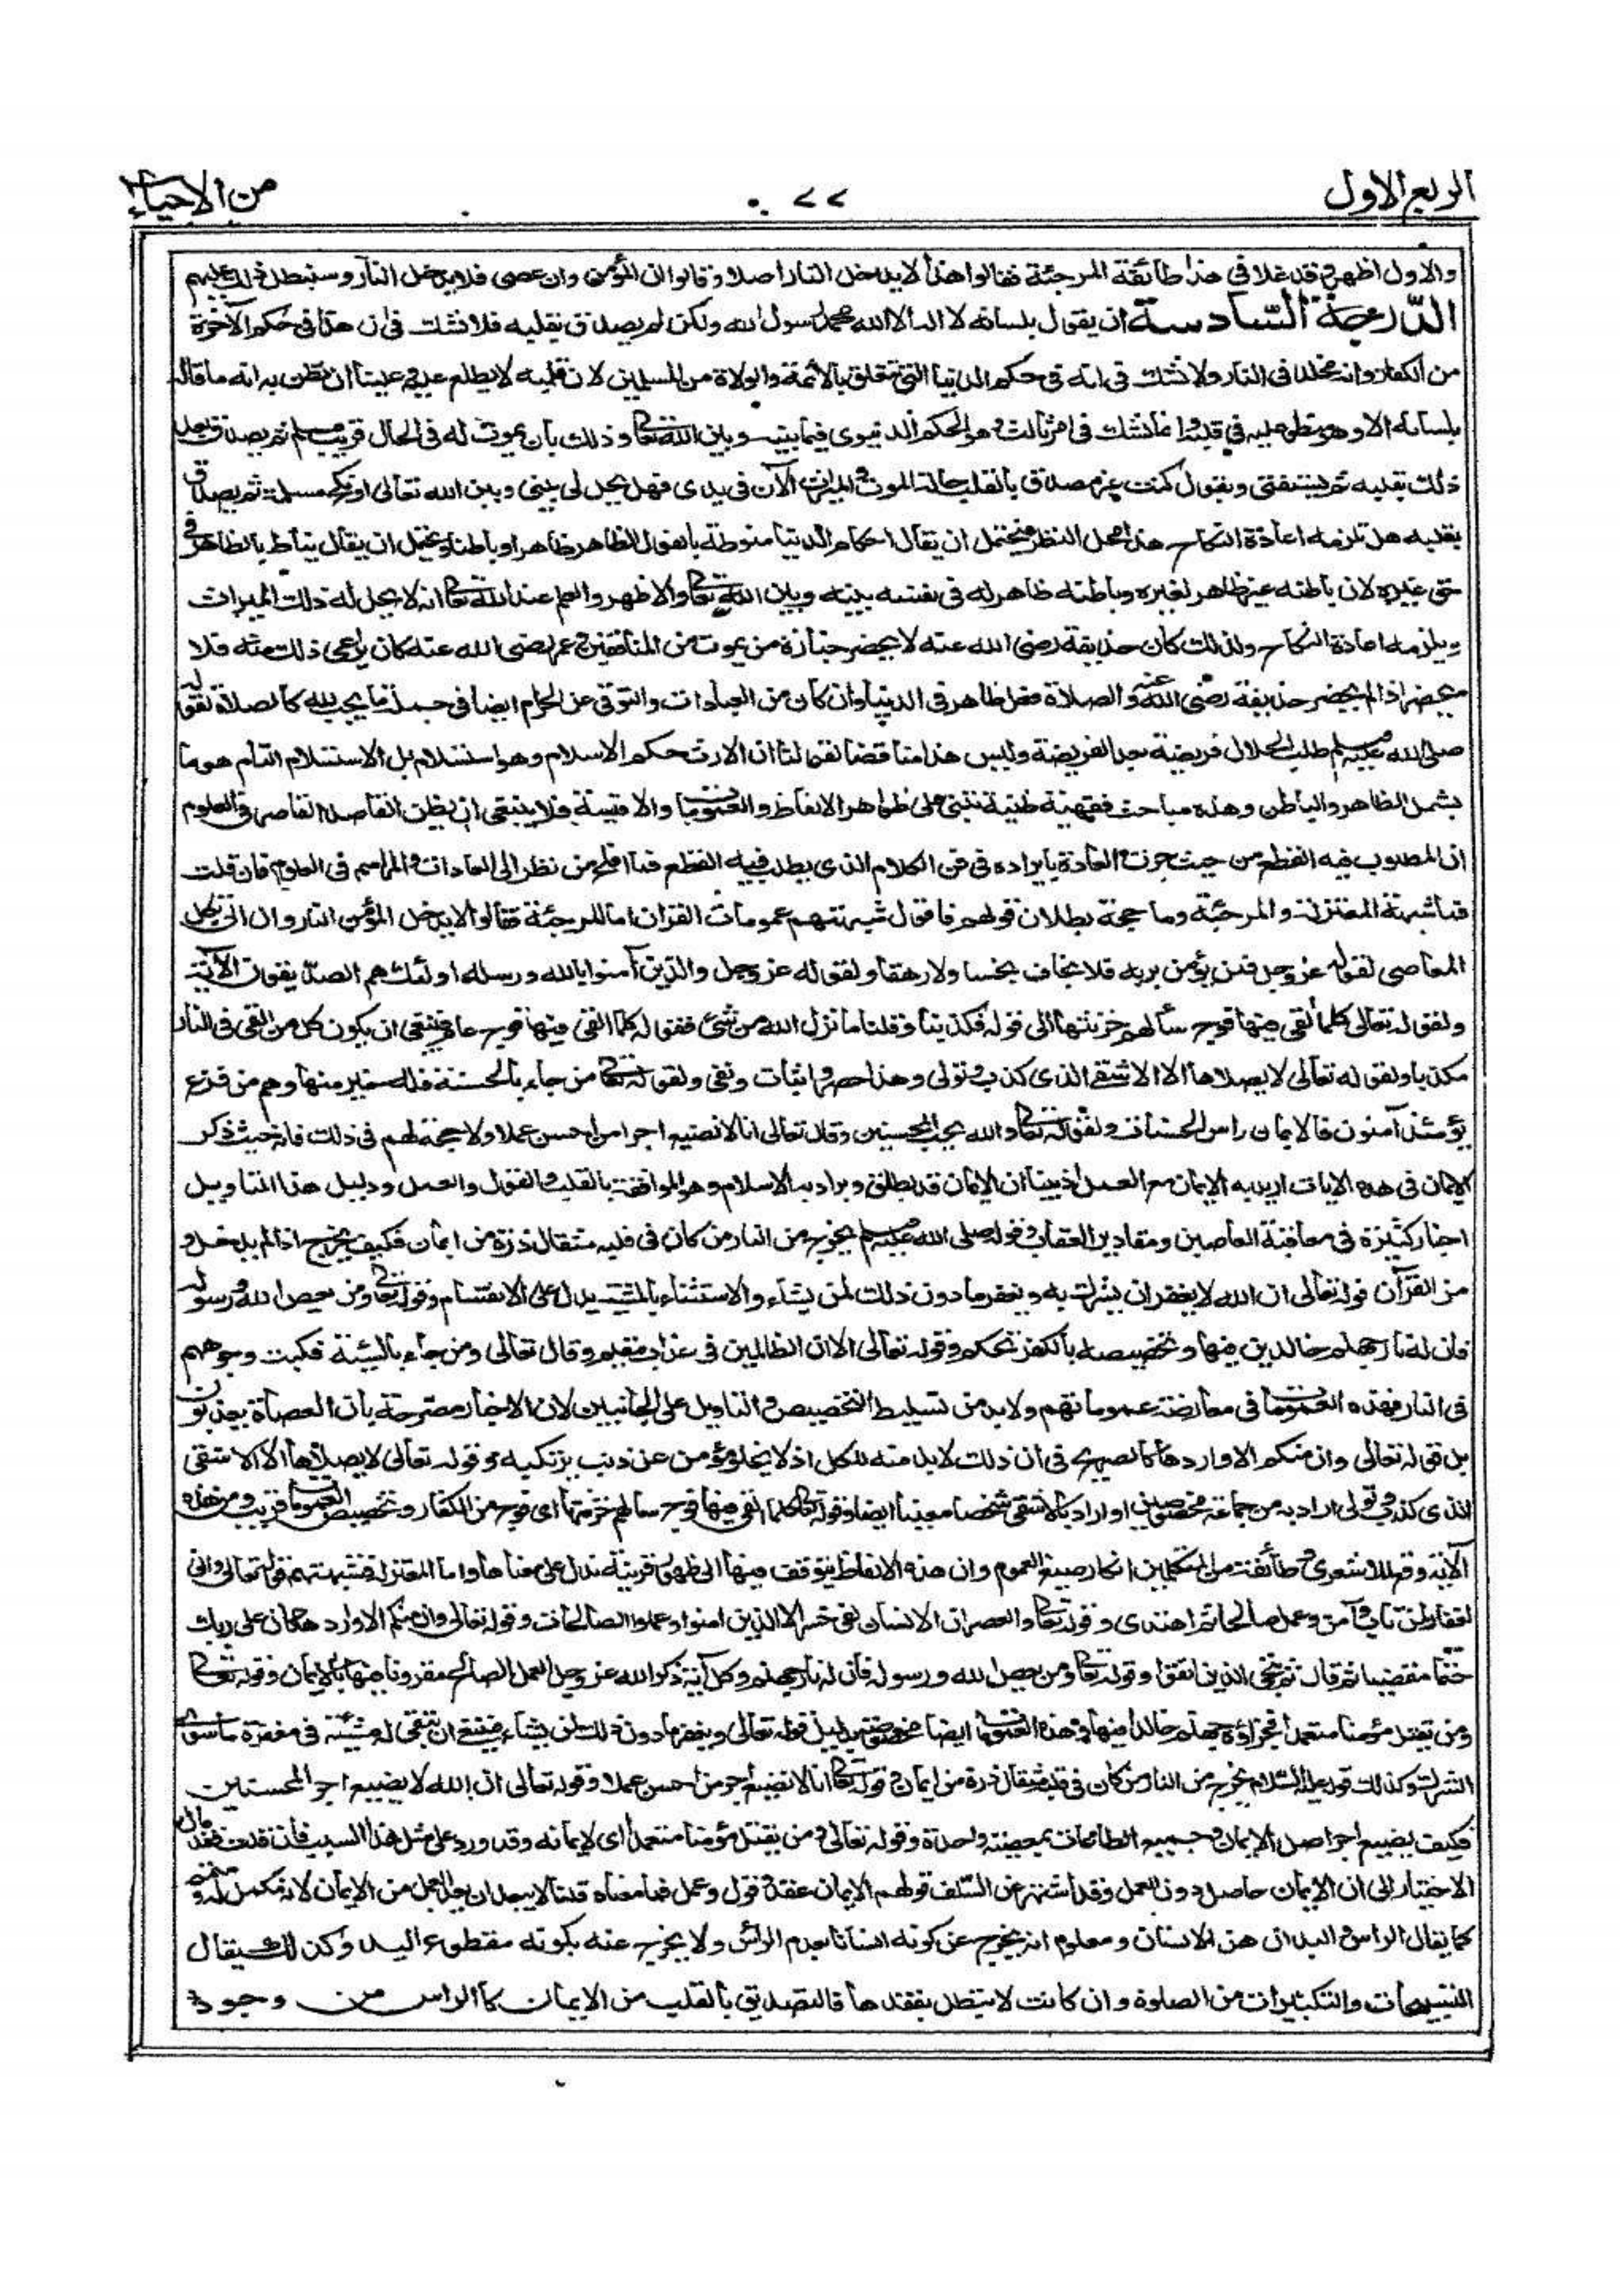 الربع الاول
٧٧
من الاحياء
والاول اظهر وقد غلا فى هذا طائفة المرجئة فقالوا هذا لا يدخل النار اصلا وقالوا ان المؤمن وان عصى فلا يدخل النار وسنبطل ذلك عليهم
الدرجة السادسة ان يقول بلسانه لا اله الا الله محمد رسول الله ولكن لم يصدق بقلبه فلا نشك فى ان هذا فى حكم الآخرة
من الكفار وانه مخلد فى النار ولا نشك فى انه فى حكم الدنيا التى تتعلق بالائمة والولاة من المسلمين لان قلبه لا يطلع عليه وعلينا ان نظن به انه ما قاله
بلسانه الا وهو منطو عليه فى قلبه وانما نشك فى امر ثالث وهو الحكم الدنيوى فيما بينه وبين الله تعالى وذلك بان يموت له فى الحال قريب مسلم ثم يصدق بعد
ذلك بقلبه ثم يستفتى ويقول كنت غير مصدق بالقلب حالة الموت والميراث الآن فى يدى فهل يحل لى بينى وبين الله تعالى او نكح مسلمة ثم يصدق
بقلبه هل تلزمه اعادة النكاح هذا محل النظر فيحتمل ان يقال احكام الدنيا منوطة بالقول الظاهر ظاهرا وباطنا ويحتمل ان يقال يناط بالظاهر فى
حق غيره لان باطنه غير ظاهر لغيره وباطنه ظاهر له فى نفسه بينه وبين الله تعالى والاظهر والعلم عند الله تعالى انه لا يحل له ذلك الميراث
ويلزمه اعادة النكاح ولذلك كان حذيفة رضى الله عنه لا يحضر جنازة من يموت من المنافقين وعمر رضى الله عنه كان يراعى ذلك منه فلا
يحضر اذا لم يحضر حذيفة رضى الله عنه والصلاة فعل ظاهر فى الدنيا وان كان من العبادات والتوقى عن الحرام ايضا فى جملة ما يجب لله كالصلاة لقوله
صلى الله عليه وسلم طلب الحلال فريضة بعد الفريضة وليس هذا مناقضا لقولنا ان الارث حكم الاسلام وهو استسلام بل الاستسلام التام هو ما
يشمل الظاهر والباطن وهذه مباحث فقهية ظنية تبتنى على ظواهر الالفاظ والعمومات والاقيسة فلا ينبغى ان يظن القاصر فى العلوم
ان المطلوب فيه القطع من حيث جرت العادة بايراده فى فن الكلام الذى يطلب فيه القطع فما افلح من نظر الى العادات والمراسم فى العلوم فان قلت
فما شبهة المعتزلة والمرجئة وما حجة بطلان قولهم فاقول شبهتهم عمومات القران اما المرجئة فقالوا لا يدخل المؤمن النار وان اتى بكل
المعاصى لقوله عز وجل فمن يؤمن بربه فلا يخاف بخسا ولا رهقا ولقوله عز وجل والذين آمنوا بالله ورسله اولئك هم الصديقون الآية
ولقوله تعالى كلما القى فيها فوج سألهم خزنتها الى قوله فكذبنا وقلنا ما نزل الله من شئ فقوله كلما القى فيها فوج عام فينبغى ان يكون كل من القى فى النار
مكذبا ولقوله تعالى لا يصلاها الا الاشقى الذى كذب وتولى وهذا حصر واثبات ونفى ولقوله تعالى من جاء بالحسنة فله خير منها وهم من فزع
يومئذ آمنون فالايمان راس الحسنات ولقوله تعالى والله يحب المحسنين وقال تعالى انا لا نضيع اجر من احسن عملا ولا حجة لهم فى ذلك فانه حيث ذكر
الايمان فى هذه الايات اريد به الايمان مع العمل اذ بينا ان الايمان قد يطلق ويراد به الاسلام وهو الموافقة بالقلب والقول والعمل ودليل هذا التاويل
اخبار كثيرة فى معاقبة العاصين ومقادير العقاب وقوله صلى الله عليه وسلم يخرج من النار من كان فى قلبه مثقال ذرة من ايمان فكيف يخرج اذا لم يدخل و
من القرآن قوله تعالى ان الله لا يغفر ان يشرك به ويغفر ما دون ذلك لمن يشاء والاستثناء بالمشيئة يدل على الانقسام وقوله تعالى ومن يعص الله ورسوله
فان له نار جهنم خالدين فيها وتخصيصه بالكفر تحكم وقوله تعالى الا ان الظالمين فى عذاب مقيم وقال تعالى ومن جاء بالسيئة فكبت وجوههم
فى النار فهذه العمومات فى معارضة عموماتهم ولا بد من تسليط التخصيص والتاويل على الجانبين لان الاخبار مصرحة بان العصاة يعذبون
بل قوله تعالى وان منكم الا واردها كالصريح فى ان ذلك لا بد منه للكل اذ لا يخلو مؤمن عن ذنب يرتكبه وقوله تعالى لا يصلاها الا الاشقى
الذى كذب وتولى اراد به من جماعة مخصوصين او اراد بالاشقى شخصا معينا ايضا وقوله تعالى كلما القى فيها فوج سألهم خزنتها اى فوج من الكفار وتخصيص العمومات قريب ومن هذه
الآية وقع للاشعرى وطائفة من المتكلمين انكار صيغ العموم وان هذه الالفاظ يتوقف فيها الى ظهور قرينة تدل على معناها واما المعتزلة فشبهتهم قوله تعالى وانى
لغفار لمن تاب وآمن وعمل صالحا ثم اهتدى وقوله تعالى والعصر ان الانسان لفى خسر الا الذين امنوا وعملوا الصالحات وقوله تعالى وان منكم الا واردها كان على ربك
حتما مقضيا ثم قال ثم ننجى الذين اتقوا وقوله تعالى ومن يعص الله ورسوله فان له نار جهنم وكل آية ذكر الله عز وجل العمل الصالح مقرونا فيها بالايمان وقوله تعالى
ومن يقتل مؤمنا متعمدا فجزاؤه جهنم خالدا فيها وهذه العمومات ايضا مخصوصة بدليل قوله تعالى ويغفر ما دون ذلك لمن يشاء فينبغى ان تبقى له مشيئة فى مغفرة ما سوى
الشرك وكذلك قوله عليه السلام يخرج من النار من كان فى قلبه مثقال ذرة من ايمان وقوله تعالى انا لا نضيع اجر من احسن عملا وقوله تعالى ان الله لا يضيع اجر المحسنين
فكيف يضيع اجر اصل الايمان وجميع الطاعات بمعصية واحدة وقوله تعالى ومن يقتل مؤمنا متعمدا اى لايمانه وقد ورد على مثل هذا السبب فان قلت فقد مال
الاختيار الى ان الايمان حاصل دون العمل وقد اشتهر عن السلف قولهم الايمان عقد وقول وعمل فما معناه قلنا لا يبعد ان يعد العمل من الايمان لانه مكمل له ومتمم
كما يقال الراس واليدان من الانسان ومعلوم انه يخرج عن كونه انسانا بعدم الراس ولا يخرج عنه بكونه مقطوع اليد وكذلك يقال
التسبيحات والتكبيرات من الصلوة وان كانت لا تبطل بفقدها فالتصديق بالقلب من الايمان كالراس من وجود